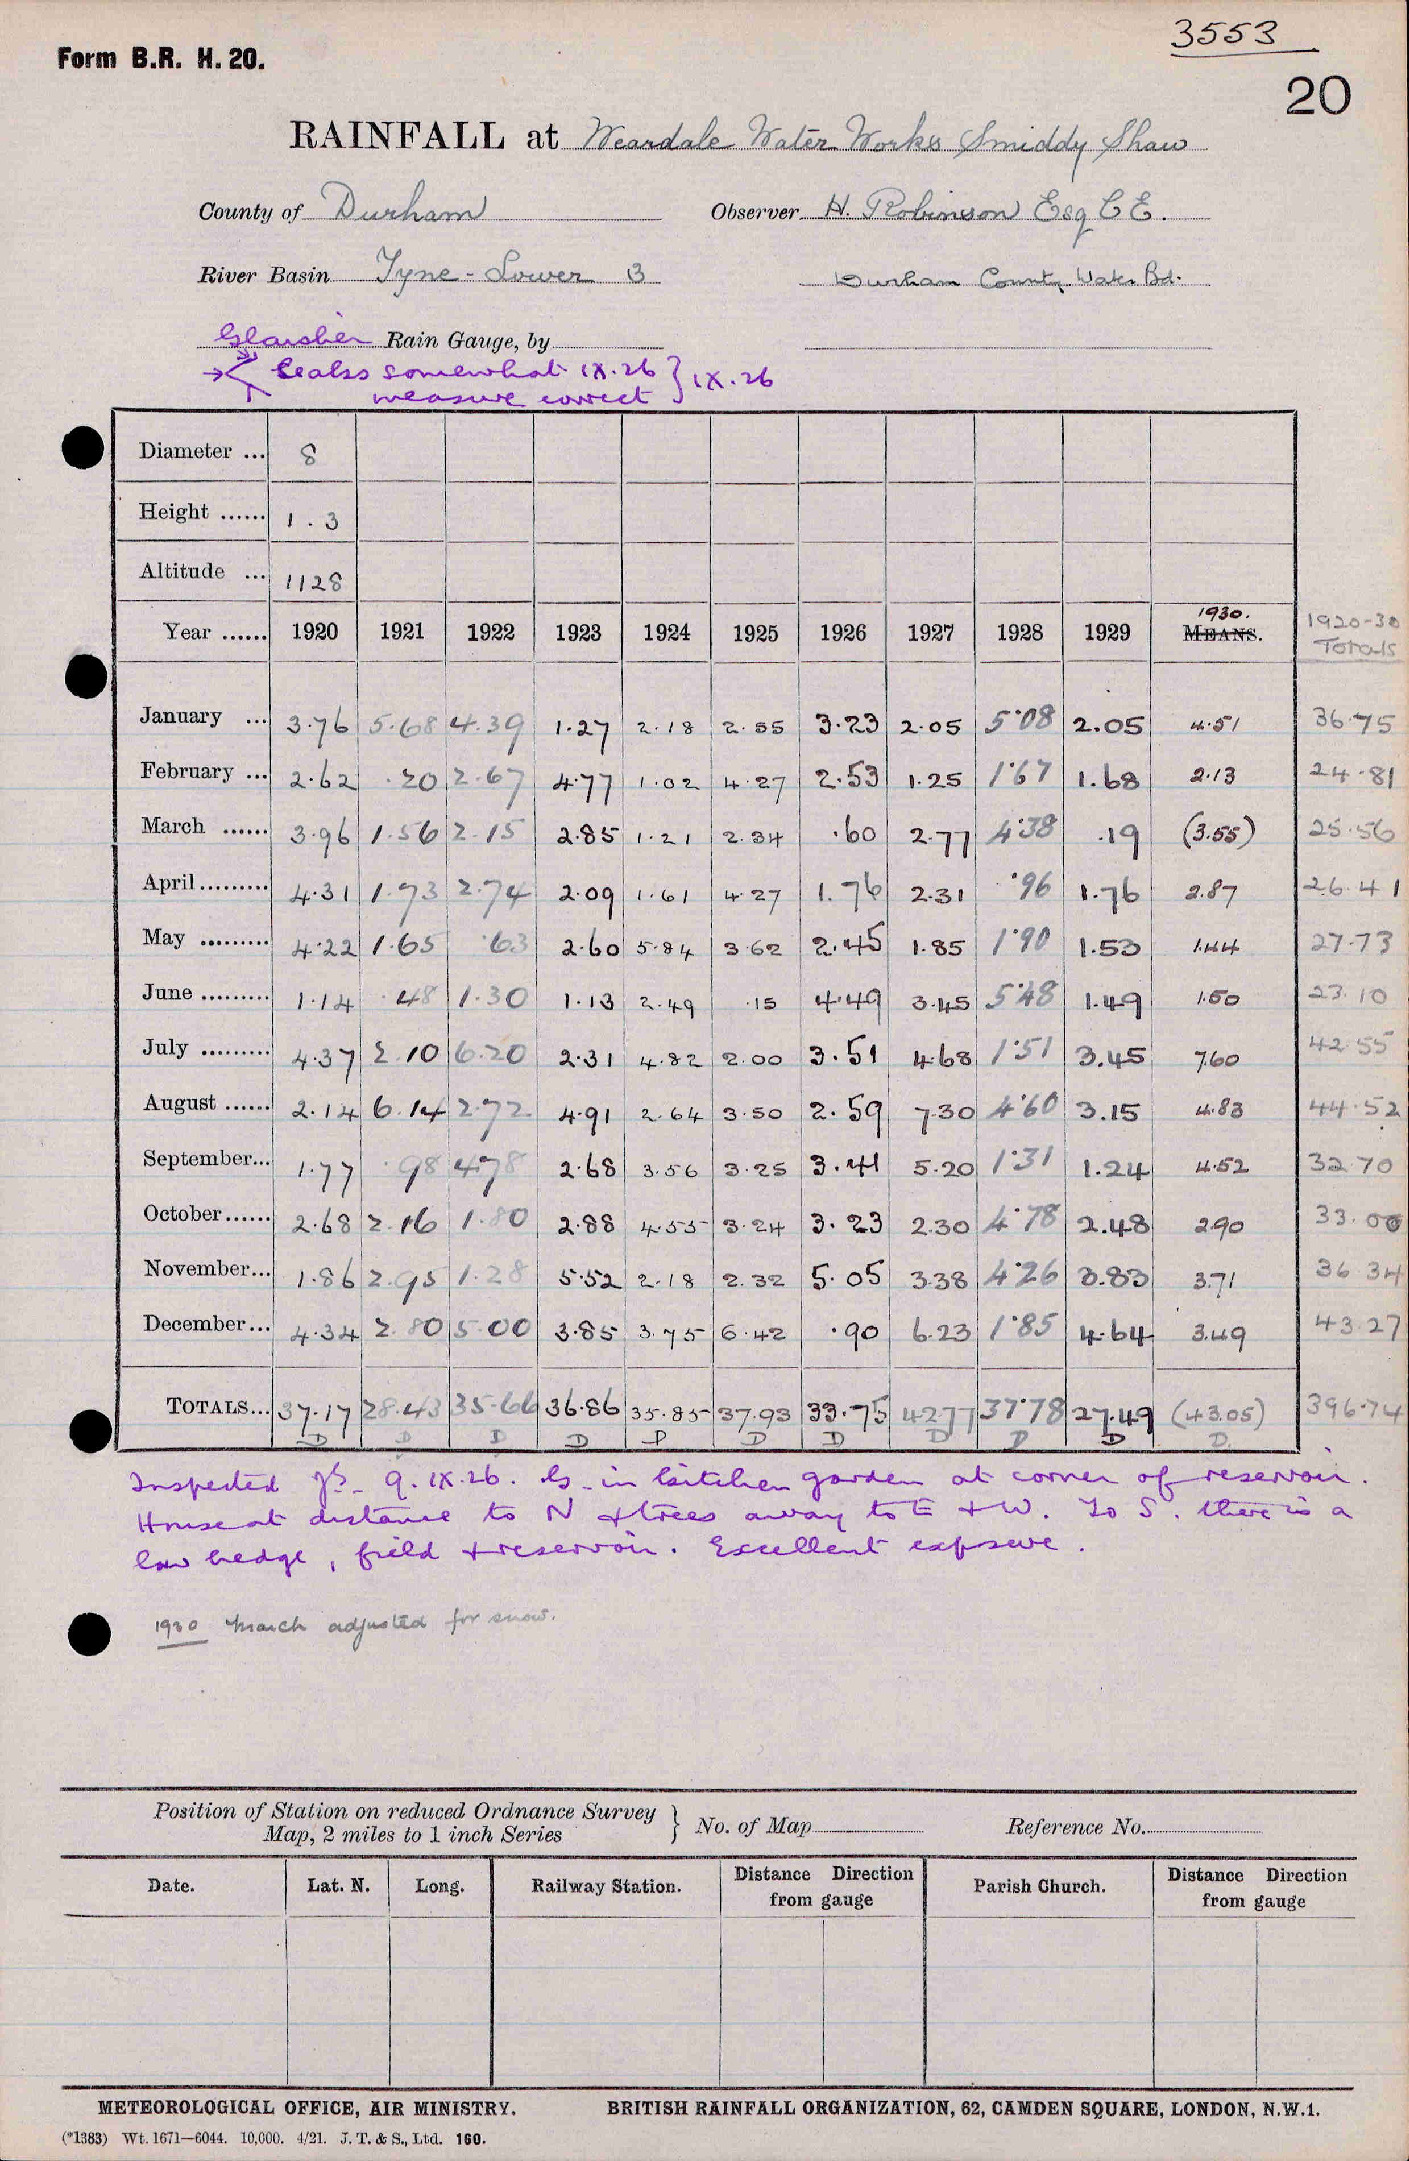 3553
Form B.R. H. 20.
20
RAINFALL at Weardale Water Works Smiddy Shaw
County of Durham Observer H. Robinson Esq C E.
River Basin Tyne - Lower 3 Durham County Water Bd.
Glaisher Rain Gauge, by
→ leaks somewhat IX.26 } IX.26
measure correct
Diameter ... 8
Height ...... 1.3
Altitude ... 1128
Year ...... 1920 1921 1922 1923 1924 1925 1926 1927 1928 1929 MEANS. 1930. 1920-30 Totals
January ... 3.76 5.68 4.39 1.27 2.18 2.55 3.23 2.05 5.08 2.05 4.51 36.75
February ... 2.62 .20 2.67 4.77 1.02 4.27 2.53 1.25 1.67 1.68 2.13 24.81
March ...... 3.96 1.56 2.15 2.85 1.21 2.34 .60 2.77 4.38 .19 (3.55) 25.56
April......... 4.31 1.73 2.74 2.09 1.61 4.27 1.76 2.31 .96 1.76 2.87 26.41
May ......... 4.22 1.65 .63 2.60 5.84 3.62 2.45 1.85 1.90 1.53 1.44 27.73
June ......... 1.14 .48 1.30 1.13 2.49 .15 4.49 3.45 5.48 1.49 1.50 23.10
July ......... 4.37 2.10 6.20 2.31 4.82 2.00 3.51 4.68 1.51 3.45 7.60 42.55
August ...... 2.14 6.14 2.72 4.91 2.64 3.50 2.59 7.30 4.60 3.15 4.83 44.52
September... 1.77 .98 4.78 2.68 3.56 3.25 3.41 5.20 1.31 1.24 4.52 32.70
October...... 2.68 2.16 1.80 2.88 4.55 3.24 3.23 2.30 4.78 2.48 2.90 33.00
November... 1.86 2.95 1.28 5.52 2.18 2.32 5.05 3.38 4.26 3.83 3.71 36.34
December... 4.34 2.80 5.00 3.85 3.75 6.42 .90 6.23 1.85 4.64 3.49 43.27
TOTALS... 37.17 28.43 35.66 36.86 35.85 37.93 33.75 42.77 37.78 27.49 (43.05) 396.74
D D D D D D D D D D D
Inspected 9.IX.26. G. in kitchen garden at corner of reservoir.
House at distance to N & trees away to E & W. To S. there is a
low hedge, field & reservoir. Excellent exposure.
1930 March adjusted for snow.
Position of Station on reduced Ordnance Survey Map, 2 miles to 1 inch Series } No. of Map Reference No.
Date. Lat. N. Long. Railway Station. Distance Direction from gauge Parish Church. Distance Direction from gauge
METEOROLOGICAL OFFICE, AIR MINISTRY. BRITISH RAINFALL ORGANIZATION, 62, CAMDEN SQUARE, LONDON, N.W.1.
(*1383) Wt. 1671—6044. 10,000. 4/21. J. T. & S., Ltd. 160.